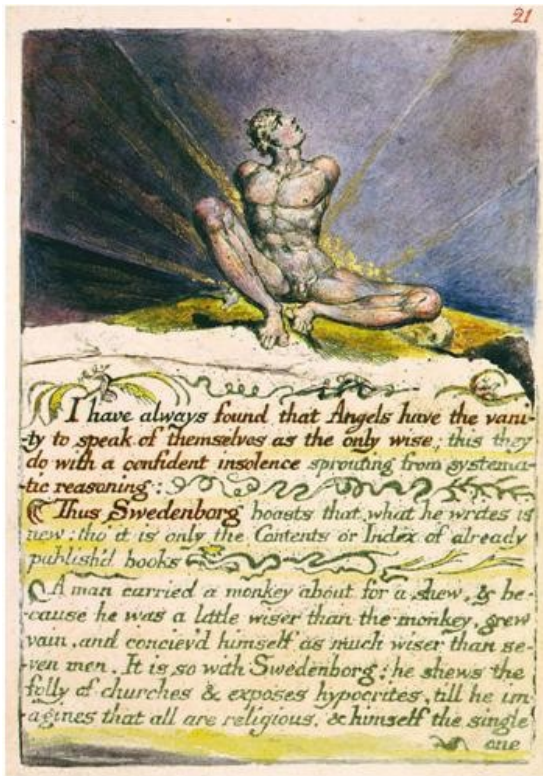 21
I have always found that Angels have the vani-
-ty to speak of themselves as the only wise; this they
do with a confident insolence sprouting from systema-
-tic reasoning:
Thus Swedenborg boasts that what he writes is
new; tho it is only the Contents or Index of already
publish'd books
A man carried a monkey about for a shew, & be-
-cause he was a little wiser than the monkey, grew
vain, and conciev'd himself as much wiser than se-
-ven men. It is so with Swedenborg; he shews the
folly of churches & exposes hypocrites, till he im-
-agines that all are religious, & himself the single
one